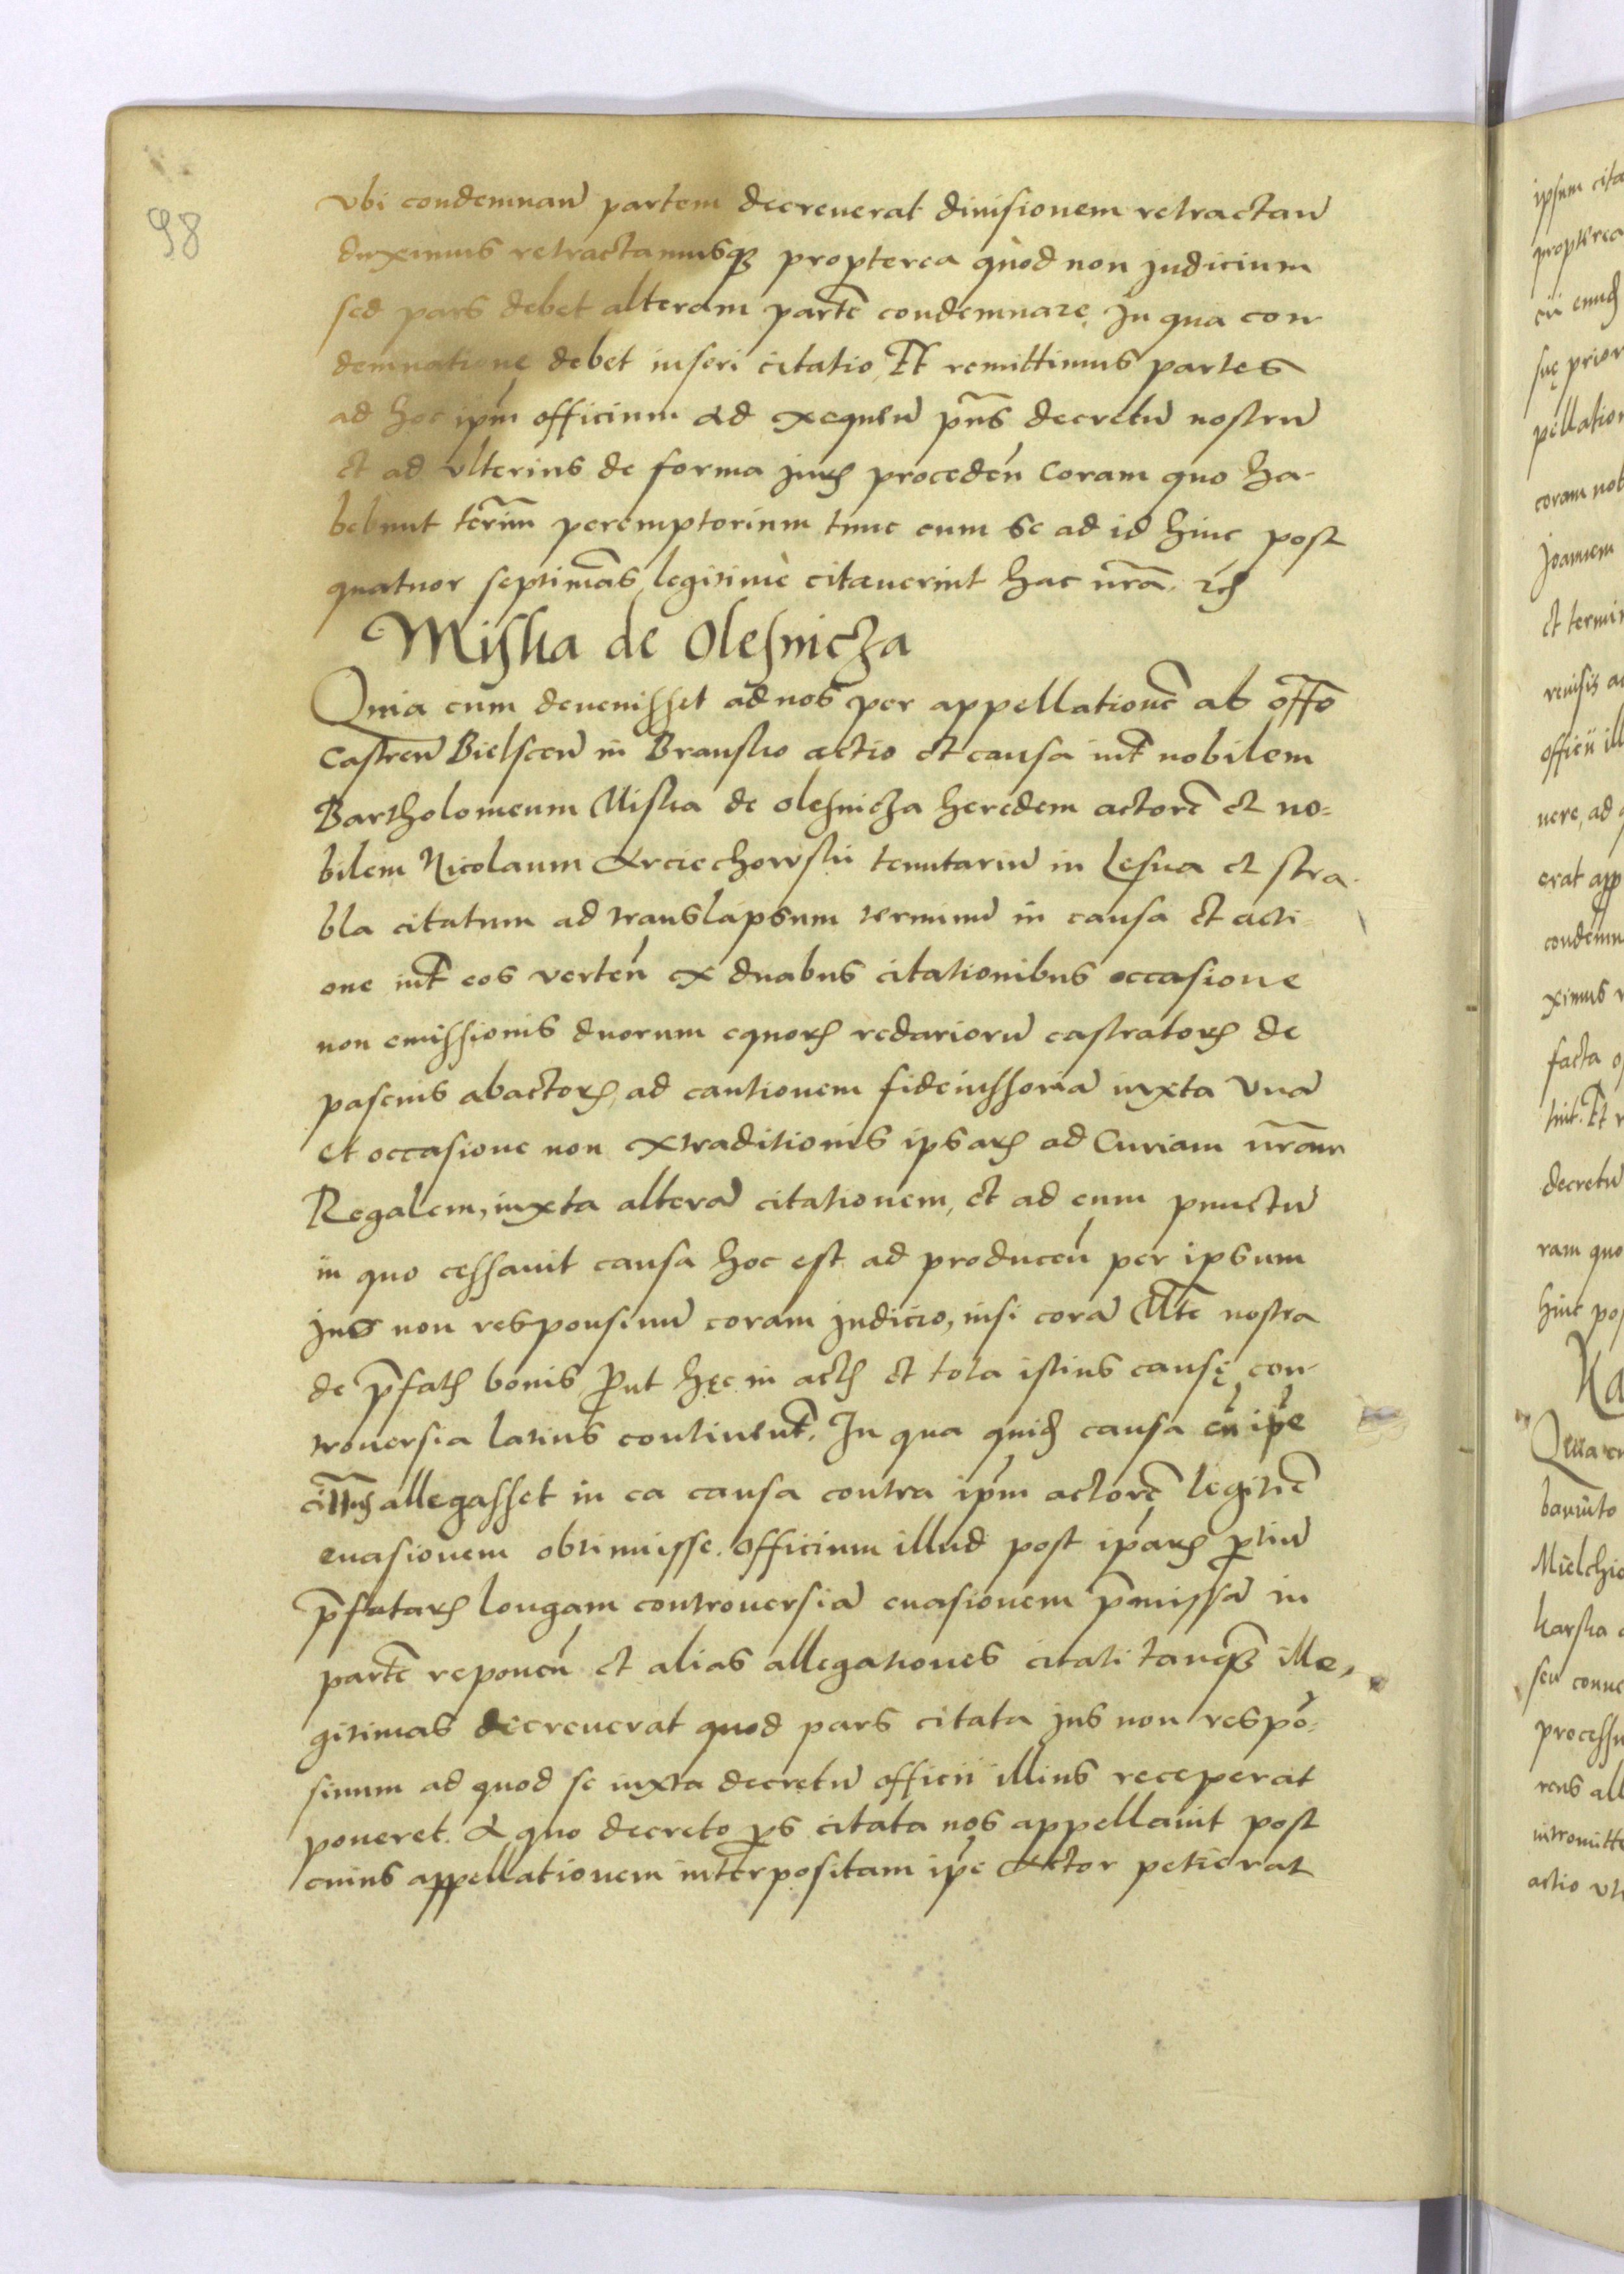 98
vbi condemnan̄ partem decreuerat diuisionem retractan̄
duximus retractamusqȝ propterea quòd non judicium
sed pars debet alteram partē condemnare. In qua con-
demnatione debet inseri citatio, Et remittimus partes
ad hoc ip̄m officium ad exequen̄ pn̄s decretū nostrū
et ad vlterius de forma juris proceden̄ Coram quo ha-
bebunt term̄ peremptorium tunc cum se ad id hinc post
quatuor septimas legitimè citauerint hac nr̄a. rc̄
Miska de Olesnicza
Quia cum deuenisset ad nos per appellationē ab offō
Castren̄ Bielscen̄ in Bransko actio et causa int̄ nobilem
Bartholomeum Miska de olesnicza heredem actorē et no=
bilem Nicolaum Arciechowski tenutariū in Lesna et stra-
bla citatum ad translapsum terminū in causa et acti
one int̄ eos verten̄ ex duabus citationibus occasione
non emissionis duorum equorꝝ redariorū castratorꝝ de
pascuis abactorꝝ, ad cautionem fideiussoriā iuxta vnā
et occasione non extraditionis ipsarꝝ ad Curiam nr̄am
Regalem, iuxta alterā citationem, et ad eum punctū
in quo cessauit causa hoc est ad producen̄ per ipsum
jus non responsiuū coram judicio, nisi corā Mte nostra
de p̄fatis bonis ꝓut hęc in actis et tota istius causę con-
trouersia latius continent̄. In qua quid̄ causa cū ip̄e
citatus allegasset in ea causa contra ip̄m actorē legitiē
euasionem obtinuisse. officium illud post ip̄arꝝ ꝑtiū
p̄fatarꝝ longam controuersiā euasionem p̄missā in
partē reponen̄ et alias allegationes citati tanqȝ ille,
gitimas decreuerat quod pars citata jus non respō-
siuum ad quod se iuxta decretū officii illius receperat
poneret. A quo decreto ꝑs citata nos appellauit post
cuius appellationem interpositam ip̄e Actor petierat